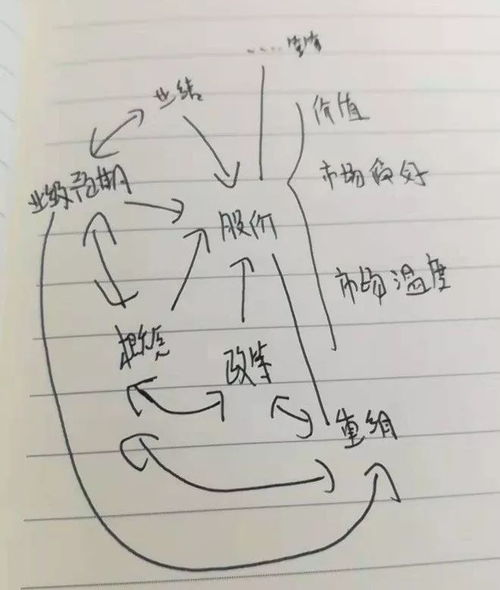 价值
业绩
市场偏好
业绩预期
股价
市场温度
概念
政策
重组